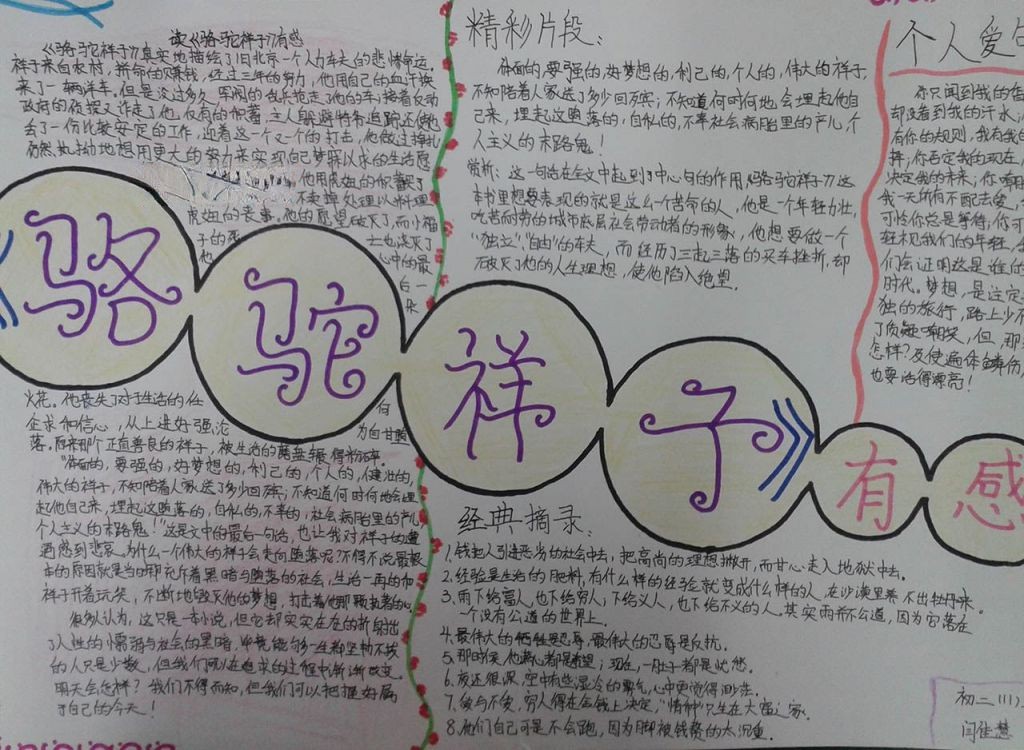 读《骆驼祥子》有感
《骆驼祥子》真实地描绘了旧北京一个人力车夫的悲惨命运。
祥子来自农村，拼命的赚钱，经过三年的努力，他用自己的血汗换
来了一辆洋车。但是没过多久，军阀的乱兵抢走了他的车；接着反动
政府的侦探又诈走了他仅有的积蓄，主人躲避特务追踪还使他
丢了一份比较安定的工作，迎着这一个又一个的打击，他做过挣扎
仍然执拗地想用更大的努力来实现自己梦寐以求的生活愿
他用虎妞的积蓄买了
不卖掉处理以料理
虎妞的丧事。他的愿望破灭了，而小福
子的死
士也浇灭了
他
心中的最
后一朵
火花。他丧失了对于生活的任
何
企求和信心，从上进好强沦
为自甘堕
落。原来那个正直善良的祥子，被生活的磨盘辗得粉碎。
“体面的，要强的，好梦想的，利己的，个人的，健壮的，
伟大的祥子，不知陪着人家送了多少回殡；不知道何时何地会埋
起他自己来，埋起这堕落的，自私的，不幸的，社会病胎里的产儿，
个人主义的末路鬼！”这是文中的最后一句话，也让我对祥子的遭
遇感到悲哀。为什么一个伟大的祥子会走向堕落呢？不得不说最根
本的原因就是当时那充斥着黑暗与堕落的社会，生活一再的和
祥子开着玩笑，不断地毁灭他的梦想，打击着他那颗执著的心。
很多人认为，这只是一本小说，但它却实实在在的折射出
了人性的懦弱与社会的黑暗，毕竟能够一生都坚韧不拔
的人只是少数，但我们可以在追求的过程中渐渐改变。
明天会怎样？我们不得而知，但我们可以把握好属
于自己的今天！
精彩片段：
体面的，要强的，好梦想的，利己的，个人的，伟大的祥子，
不知陪着人家送了多少回殡；不知道何时何地会埋起他自
己来，埋起这堕落的，自私的，不幸社会病胎里的产儿，个
人主义的末路鬼！
赏析：这一句话在全文中起到了中心句的作用，《骆驼祥子》这
本书里想要表现的就是这么一个苦命的人，他是一个年轻力壮，
吃苦耐劳的城市底层社会劳动者的形象，他想要做一个
“独立”，“自由”的车夫，而经历了三起三落的买车挫折，却
破灭了他的人生理想，使他陷入绝望。
个人爱句
你只闻到我的香
却没看到我的汗水；
有你的规则，我有我的
择，你否定我的现在，
决定我的未来；你嘲
我一无所有不配去爱，
可怜你总是等待，你可
轻视我们的年轻，
们会证明这是谁的
时代。梦想，是注定
独的旅行，路上少不
了质疑和嘲笑，但，那
怎样？及使遍体鳞伤，
也要活得漂亮！
《骆驼祥子》有感
经典摘录：
1.钱把人引进恶劣的社会中去，把高尚的理想撇开，而甘心走入地狱中去。
2.经验是生活的肥料，有什么样的经验就变成什么样的人，在沙漠里养不出牡丹来。
3.雨下给富人，也下给穷人；下给义人，也下给不义的人。其实，雨并不公道，因为它落在
一个没有公道的世界上。
4.最伟大的牺牲是忍辱，最伟大的忍辱是反抗。
5.那时候，他满心都是希望；现在，一肚子都是忧愁。
6.夜还很深，空中有些湿冷的雾气，心中更觉得渺茫。
7.爱与不爱，穷人得在金钱上决定，“情种”只生在大富之家。
8.他们自己可是不会跑，因为脚被钱赘的太沉重。
初三（11）
闫佳慧